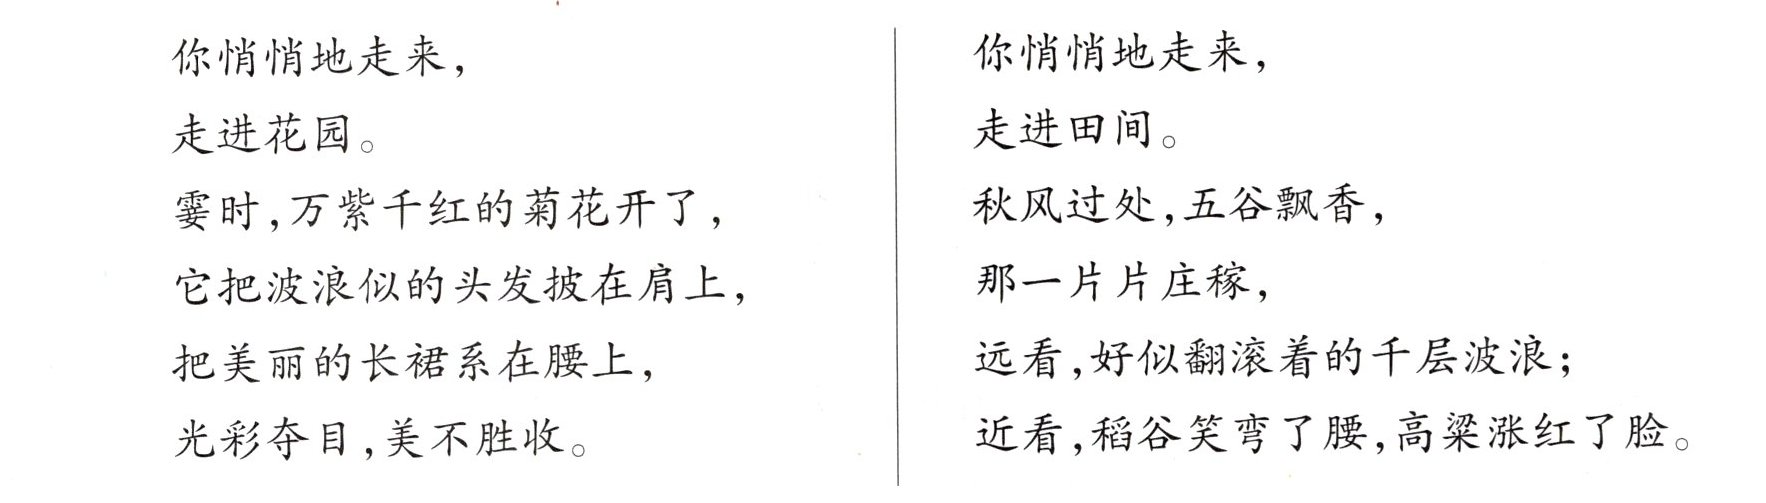 你悄悄地走来，
走进花园。
霎时，万紫千红的菊花开了，
它把波浪似的头发披在肩上，
把美丽的长裙系在腰上，
光彩夺目，美不胜收。
你悄悄地走来，
走进田间。
秋风过处，五谷飘香，
那一片片庄稼，
远看，好似翻滚着的千层波浪；
近看，稻谷笑弯了腰，高粱涨红了脸。